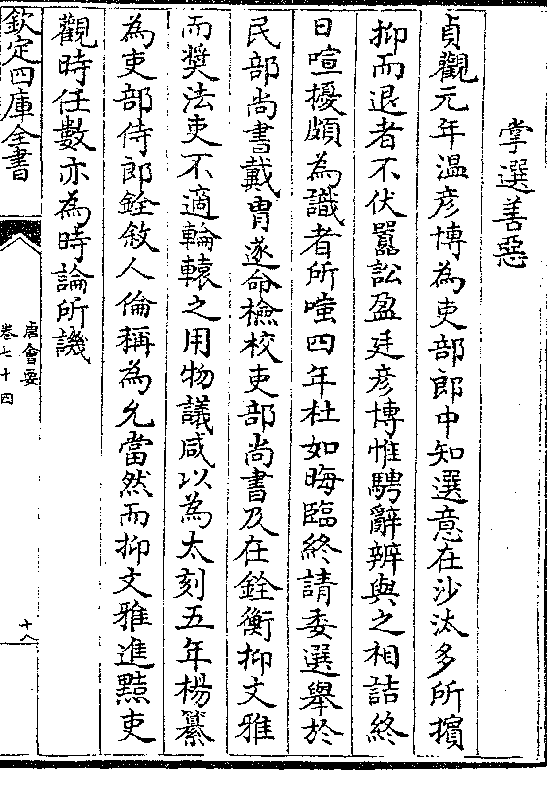 掌選善惡
貞觀元年温彦博為吏部郎中知選意在沙汰多所擯
抑而退者不伏囂訟盈廷彦博惟騁辭辨與之相詰終
日喧擾頗為識者所嗤四年杜如晦臨終請委選舉於
民部尚書戴胄遂命檢校吏部尚書及在銓衡抑文雅
而奬法吏不適輪轅之用物議咸以為太刻五年楊纂
為吏部侍郎銓敘人倫稱為允當然而抑文雅進黠吏
觀時任數亦為時論所譏
欽定四庫全書
唐會要
卷七十四
十八